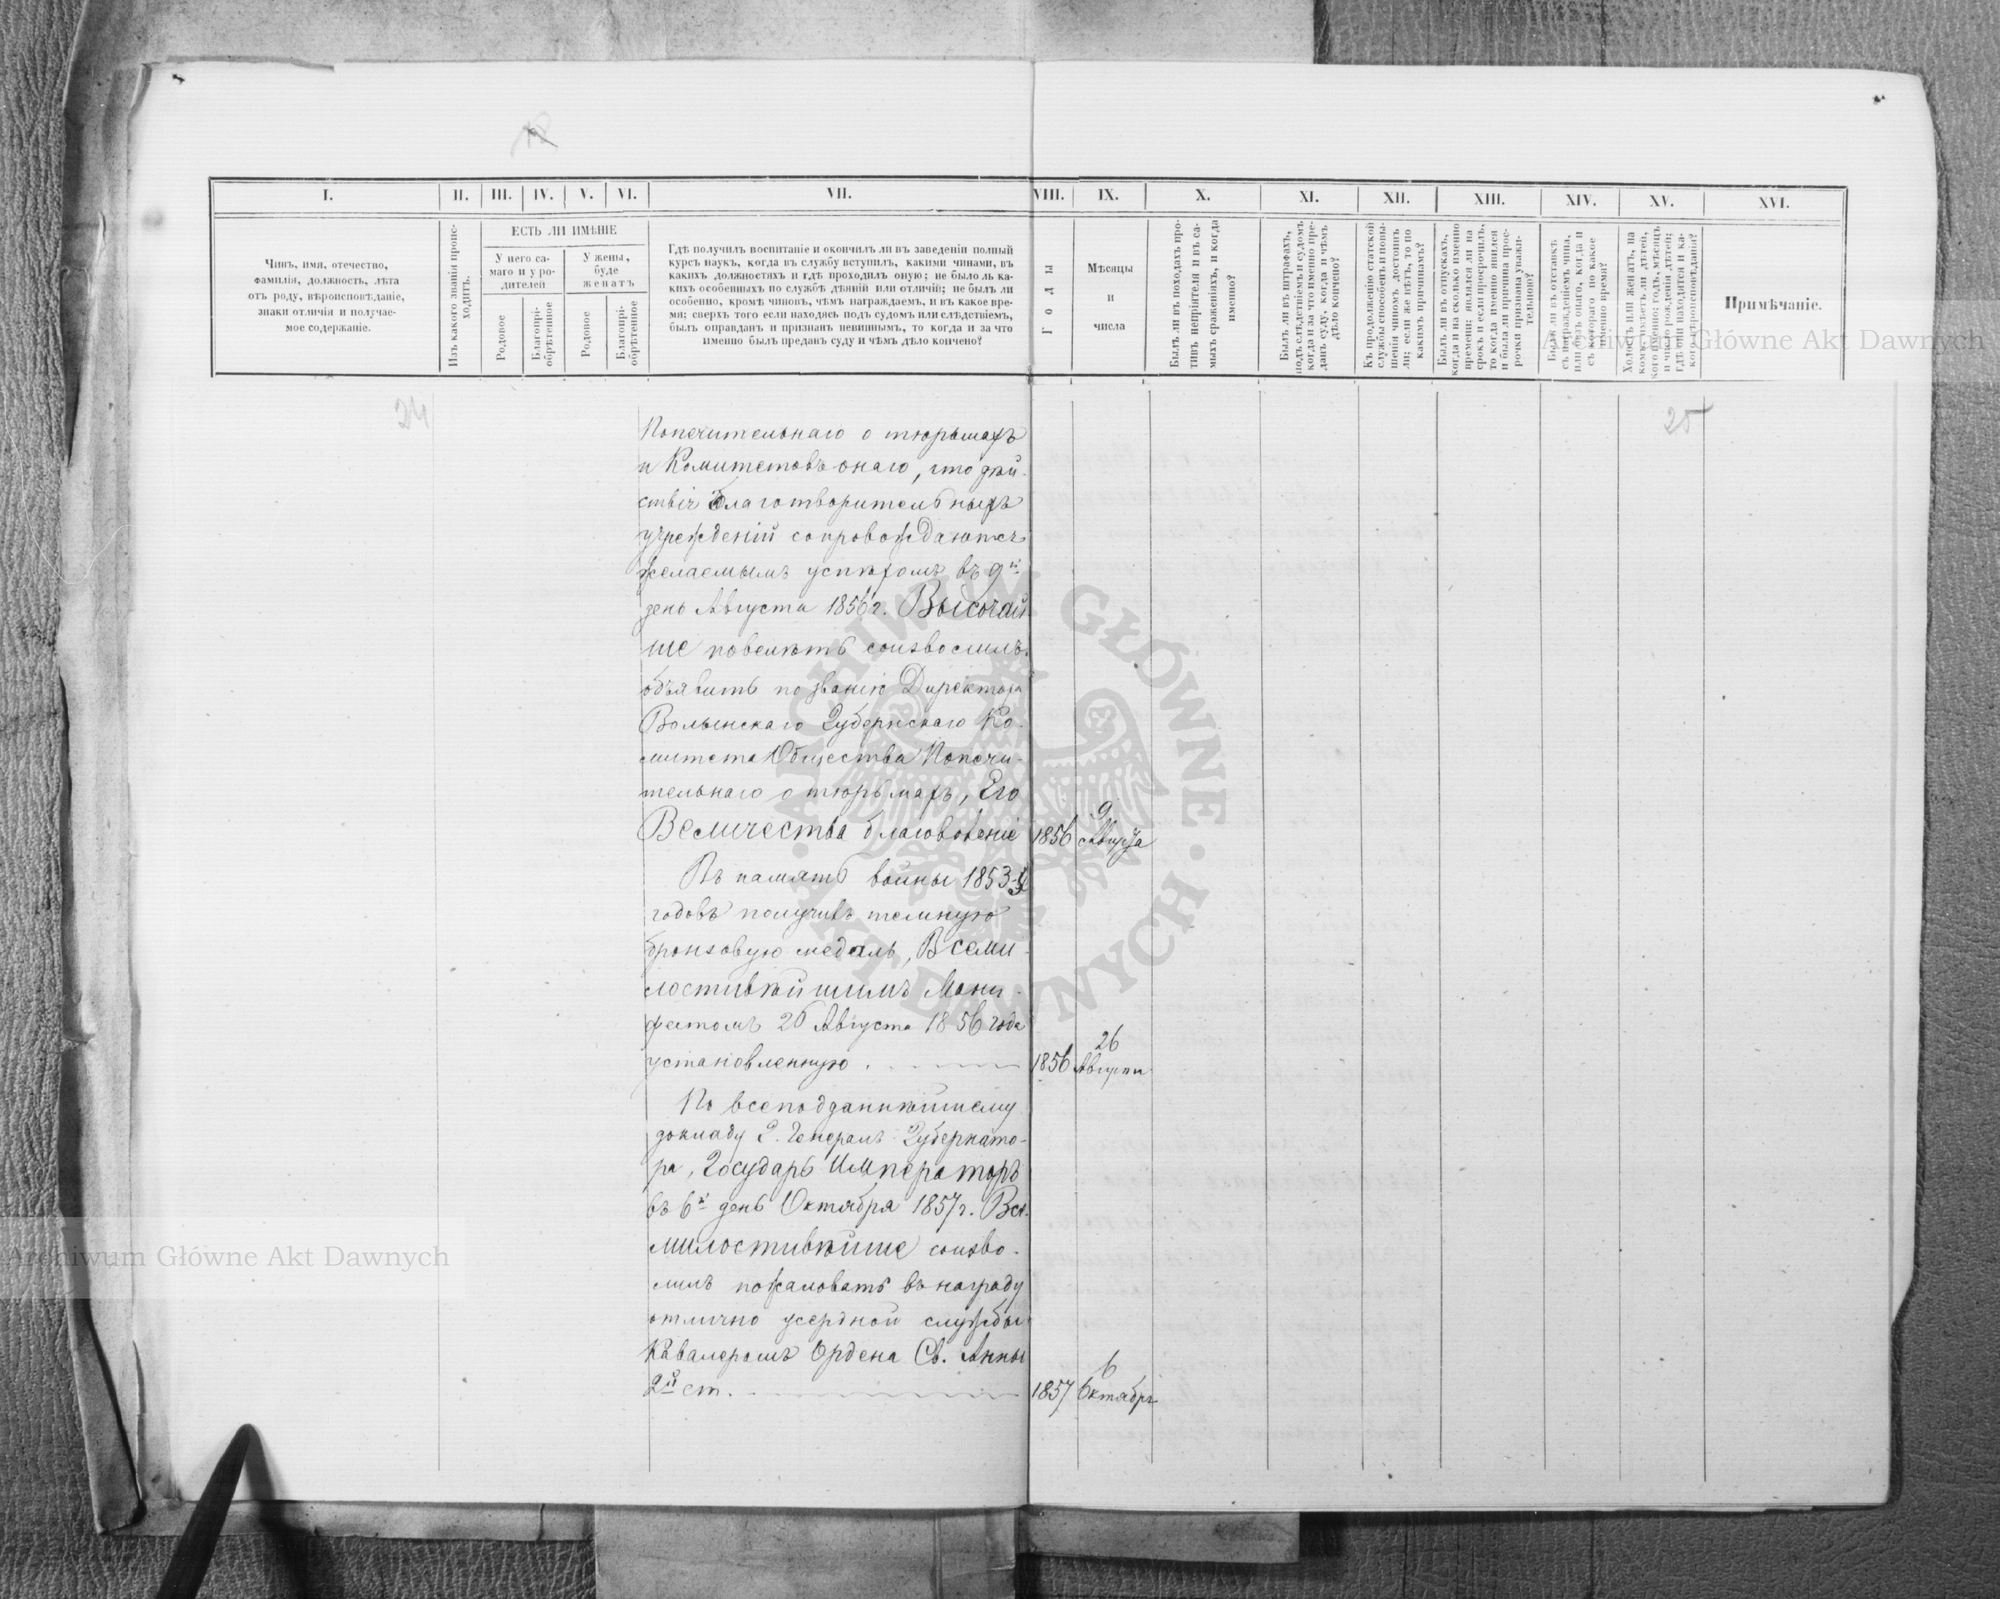 I.
II.
III.
IV.
V.
VI.
VII.
VIII.
IX.
X.
XI.
XII.
XIII.
XIV.
XV.
XVI.
Чинъ, имя, отечество,
фамилія, должность, лѣта
отъ роду, вѣроисповѣданіе,
знаки отличія и получае-
мое содержаніе.
Изъ какого званія проис-
ходитъ.
ЕСТЬ ЛИ ИМѢНІЕ
У него са-
маго и у ро-
дителей
У жены,
буде
женатъ
Родовое
Благопрі-
обрѣтенное
Родовое
Благопрі-
обрѣтенное
Гдѣ получилъ воспитаніе и окончилъ ли въ заведеніи полный
курсъ наукъ, когда въ службу вступилъ, какими чинами, въ
какихъ должностяхъ и гдѣ проходилъ оную; не было ль ка-
кихъ особенныхъ по службѣ дѣяній или отличій; не былъ ли
особенно, кромѣ чиновъ, чѣмъ награждаемъ, и въ какое вре-
мя; сверхъ того если находясь подъ судомъ или слѣдствіемъ,
былъ оправданъ и признанъ невиннымъ, то когда и за что
именно былъ преданъ суду и чѣмъ дѣло кончено?
Годы
Мѣсяцы
и
числа
Былъ ли въ походахъ про-
тивъ непріятеля и въ са-
мыхъ сраженіяхъ, и когда
именно?
Былъ ли въ штрафахъ,
подъ слѣдствіемъ и судомъ,
когда и за что именно пре-
данъ суду, когда и чѣмъ
дѣло кончено?
Къ продолженію статской
службы способенъ и повы-
шенія чиномъ достоинъ
ли; если же нѣтъ, то по
какимъ причинамъ?
Былъ ли въ отпускахъ,
когда и на сколько именно
времени; являлся ли на
срокъ и если просрочилъ,
то когда именно явился
и была ли причина прос-
рочки признана уважи-
тельною?
Былъ ли въ отставкѣ
съ награжденіемъ чина,
или безъ онаго, когда и
съ котораго по какое
именно время?
Холостъ или женатъ, на
комъ, имѣетъ ли дѣтей,
кого именно; годъ, мѣсяцъ
и число рожденія дѣтей;
гдѣ они находятся и ка-
кого вѣроисповѣданія?
Примѣчаніе.
24
25
Попечительнаго о тюрьмахъ
и Комитетовъ онаго, что дѣй-
ствія благотворительныхъ
учрежденій сопровождаются
желаемымъ успѣхомъ въ 9й
день Августа 1856 г. Высочай
ше повелѣть соизволилъ
объявить по званію Директора
Волынскаго Губернскаго Ко-
митета Общества Попечи-
тельнаго о тюрьмахъ, Его
Величества благоволеніе 1856 9 Августа
Въ память войны 1853-
годовъ получилъ темную
бронзовую медаль, Всеми-
лостивѣйшимъ Мани-
фестомъ 26 Августа 1856 года
установленную . 1856 26 Августа
По всеподданнѣйшему
докладу Г. Генералъ Губернато-
ра, Государь Императоръ
въ 6й день Октября 1857 г. Все-
милостивѣйше соизво-
лилъ пожаловать въ награду
отлично усердной службы
Кавалеромъ Ордена Св. Анны
2й ст. 1857 6 Октября
Archiwum Główne Akt Dawnych
Archiwum Główne Akt Dawnych
ARCHIWUM GŁÓWNE AKT DAWNYCH